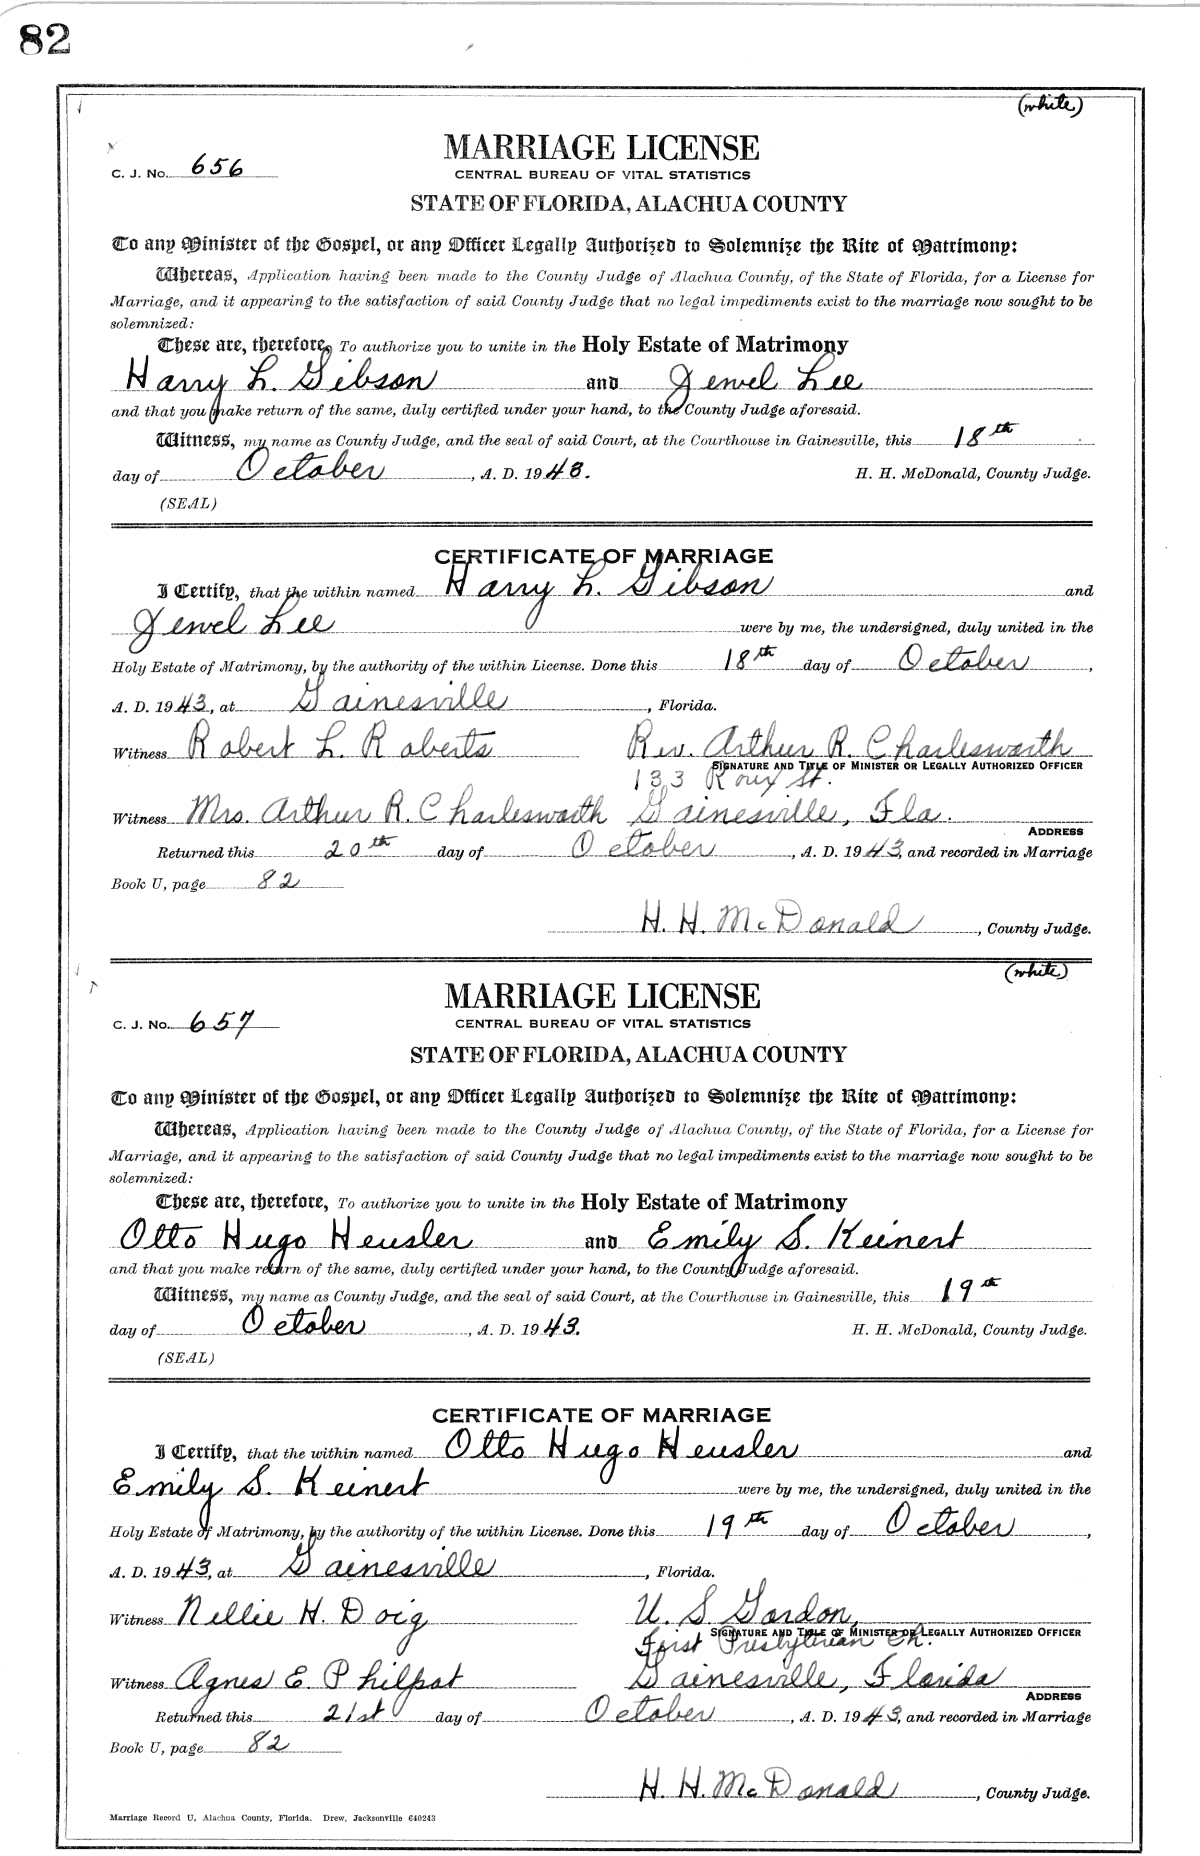 82
(white)
MARRIAGE LICENSE
C. J. No. 656
CENTRAL BUREAU OF VITAL STATISTICS
STATE OF FLORIDA, ALACHUA COUNTY
To any Minister of the Gospel, or any Officer Legally Authorized to Solemnize the Rite of Matrimony:
Whereas, Application having been made to the County Judge of Alachua County, of the State of Florida, for a License for
Marriage, and it appearing to the satisfaction of said County Judge that no legal impediments exist to the marriage now sought to be
solemnized:
These are, therefore, To authorize you to unite in the Holy Estate of Matrimony
Harry L. Gibson and Jewel Lee
and that you make return of the same, duly certified under your hand, to the County Judge aforesaid.
Witness, my name as County Judge, and the seal of said Court, at the Courthouse in Gainesville, this 18th
day of October, A. D. 1943. H. H. McDonald, County Judge.
(SEAL)
CERTIFICATE OF MARRIAGE
I Certify, that the within named Harry L. Gibson and
Jewel Lee were by me, the undersigned, duly united in the
Holy Estate of Matrimony, by the authority of the within License. Done this 18th day of October,
A. D. 1943, at Gainesville, Florida.
Witness Robert L. Roberts Rev. Arthur R. Charlesworth
SIGNATURE AND TITLE OF MINISTER OR LEGALLY AUTHORIZED OFFICER
133 Roux St.
Witness Mrs. Arthur R. Charlesworth Gainesville, Fla.
ADDRESS
Returned this 20th day of October, A. D. 1943, and recorded in Marriage
Book U, page 82
H. H. McDonald, County Judge.
(white)
MARRIAGE LICENSE
C. J. No. 657
CENTRAL BUREAU OF VITAL STATISTICS
STATE OF FLORIDA, ALACHUA COUNTY
To any Minister of the Gospel, or any Officer Legally Authorized to Solemnize the Rite of Matrimony:
Whereas, Application having been made to the County Judge of Alachua County, of the State of Florida, for a License for
Marriage, and it appearing to the satisfaction of said County Judge that no legal impediments exist to the marriage now sought to be
solemnized:
These are, therefore, To authorize you to unite in the Holy Estate of Matrimony
Otto Hugo Heusler and Emily S. Keinert
and that you make return of the same, duly certified under your hand, to the County Judge aforesaid.
Witness, my name as County Judge, and the seal of said Court, at the Courthouse in Gainesville, this 19th
day of October, A. D. 1943. H. H. McDonald, County Judge.
(SEAL)
CERTIFICATE OF MARRIAGE
I Certify, that the within named Otto Hugo Heusler and
Emily S. Keinert were by me, the undersigned, duly united in the
Holy Estate of Matrimony, by the authority of the within License. Done this 19th day of October,
A. D. 1943, at Gainesville, Florida.
Witness Nellie H. Doig U. S. Gordon,
SIGNATURE AND TITLE OF MINISTER OR LEGALLY AUTHORIZED OFFICER
First Presbyterian Ch.
Witness Agnes E. Philpot Gainesville, Florida
ADDRESS
Returned this 21st day of October, A. D. 1943, and recorded in Marriage
Book U, page 82
H. H. McDonald, County Judge.
Marriage Record U, Alachua County, Florida. Drew, Jacksonville 640243